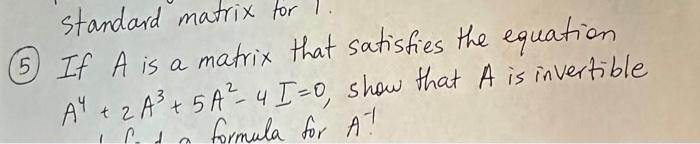 standard matrix for T.
⑤ If A is a matrix that satisfies the equation
A⁴ + 2A³ + 5A² - 4I = 0, show that A is invertible
a formula for A⁻¹.